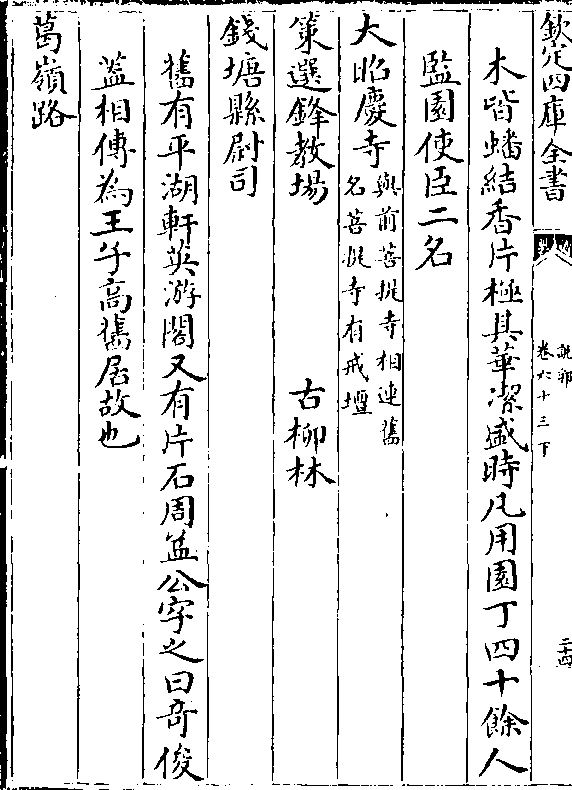 欽定四庫全書
說郛
卷六十三下
二十四
木皆蟠結香片極其華潔盛時凡用園丁四十餘人
監園使臣二名
大昭慶寺與前菩提寺相連舊
名菩提寺有戒壇
策選鋒教場　古柳林
錢塘縣尉司
舊有平湖軒英游閣又有片石周益公字之曰奇俊
葢相傳為王子高舊居故也
葛嶺路